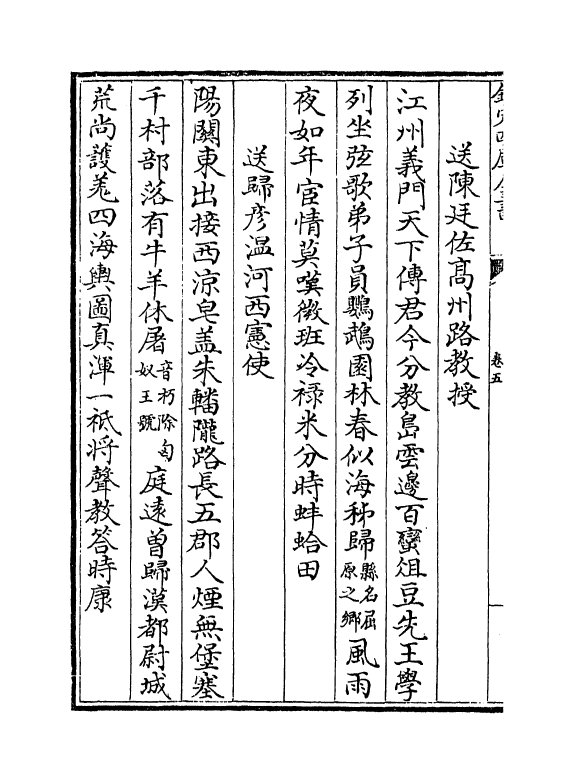 欽定四庫全書
卷五
送陳廷佐髙州路教授
江州義門天下傳君今分教島雲邊百蠻俎豆先王學
列坐弦歌弟子員鸚鵡園林春似海秭歸縣名屈原之鄉風雨
夜如年宦情莫嘆微班冷祿米分時蚌蛤田
送歸彥温河西憲使
陽關東出接西涼皂盖朱轓隴路長五郡人煙無堡塞
千村部落有牛羊休屠音朽除匈奴王號庭逺曽歸漢都尉城
荒尚䕶羗四海輿圖真渾一祗将聲教答時康